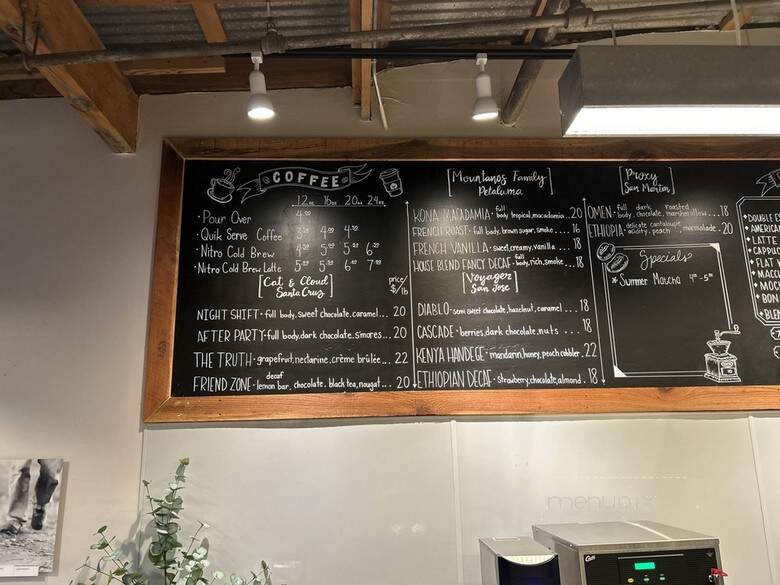 COFFEE
12oz 16oz 20oz 24oz
• Pour Over 4.00
• Quik Serve Coffee 4 4
• Nitro Cold Brew 4 5 5 6
• Nitro Cold Brew Latte 5 5 6 7
[Cat & Cloud
Santa Cruz]
price/
$/lb
NIGHT SHIFT • full body, sweet chocolate, caramel... 20
AFTER PARTY • full body, dark chocolate, s'mores... 20
THE TRUTH • grapefruit, nectarine, crème brûlée... 22
FRIEND ZONE • decaf lemon bar, chocolate, black tea, nougat... 20
[Mountanos Family
Petaluma]
KONA MACADAMIA • full body, tropical, macadamia... 20
FRENCH ROAST • full body, brown sugar, smoke... 16
FRENCH VANILLA • sweet, creamy, vanilla... 18
HOUSE BLEND FANCY DECAF • full body, rich, smoke... 18
[Voyager
San Jose]
DIABLO • semi sweet chocolate, hazelnut, caramel... 18
CASCADE • berries, dark chocolate, nuts... 18
KENYA HANDEGE • mandarin, honey, peach cobbler. 22
ETHIOPIAN DECAF • strawberry, chocolate, almond. 18
[Proxy
San Martin]
OMEN • full body, dark chocolate, roasted marshmallow... 18
ETHIOPIA • delicate acidity, cantaloupe, peach, marmalade. 20
Specials
* Summer Matcha
• DOUBLE ES
• AMERICA
• LATTE
• CAPPUC
• FLAT W
• MACC
• MOC
• BON
• BLEN
menu